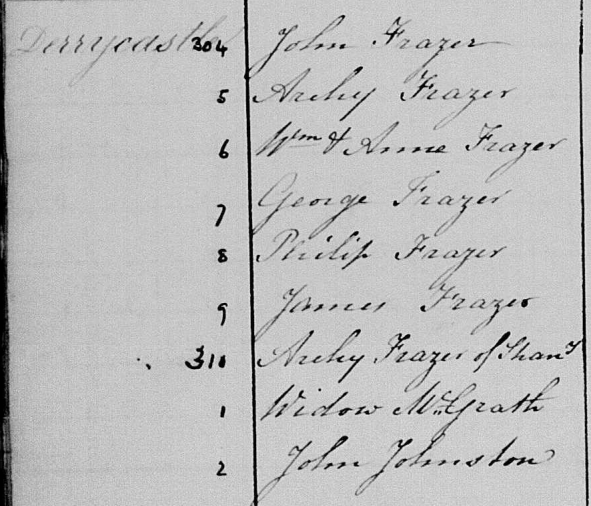 Derrycastle 304 John Frazer
5 Archy Frazer
6 Wm & Anne Frazer
7 George Frazer
8 Philip Frazer
9 James Frazer
310 Archy Frazer of Shany
1 Widow McGrath
2 John Johnston